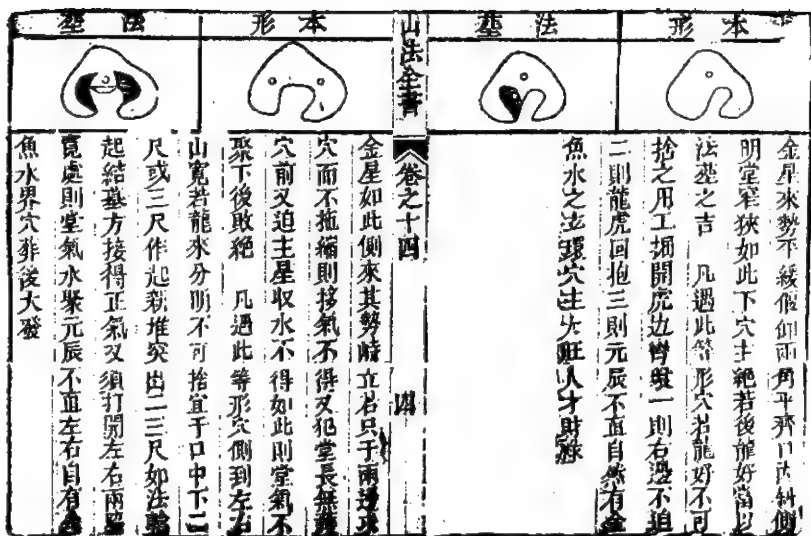 本形
法塋
金星來勢平緩偃仰兩角平齊口内斜側
明堂窄狹如此下穴主絶若後龍好當以
法塟之吉　凡遇此等形穴若龍好不可
捨之用工掘開虎边彎曲一則右邊不迫
二則龍虎回抱三則元辰不直自然有金
魚水之法環穴主大旺人才財祿
山法全書
卷之十四
四
本形
法塋
金星如此側來其勢峙立若只于兩邊求
穴而不拖縮則接氣不得又犯堂長無護
穴前又迫主星収水不得如此則堂氣不
聚下後敗絶　凡遇此等形穴側到左右
山寛若龍來分明不可捨宜于口中下二
尺或三尺作起親堆突出二三尺如法輪
起結墓方接得正氣又須打開左右兩
寛處則堂氣水聚元辰不直左右自有金
魚水界穴葬後大發